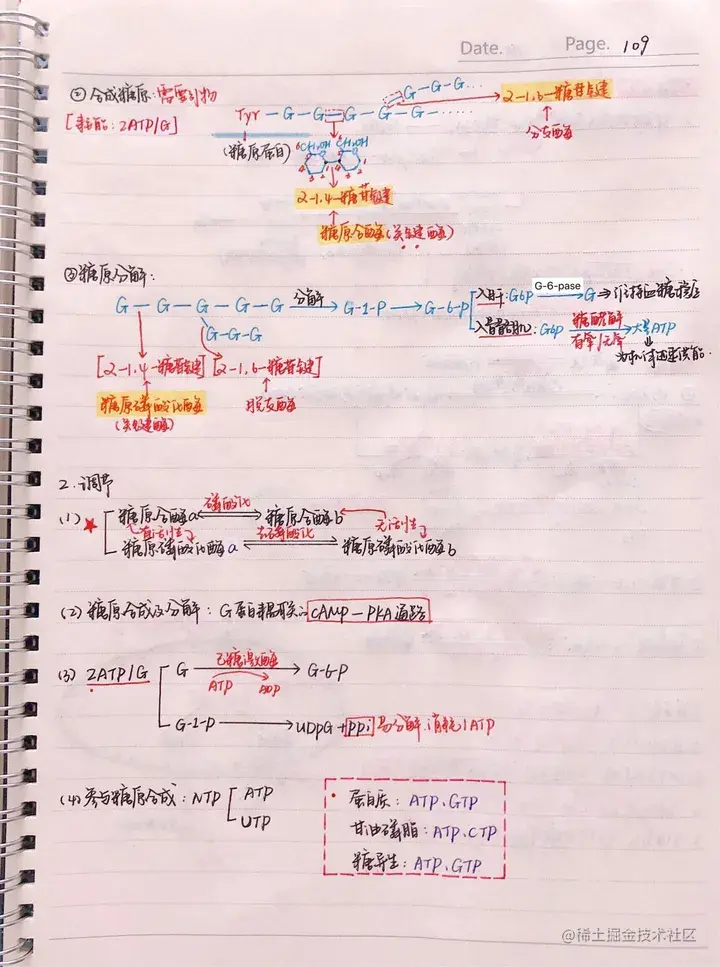 Date. Page. 109
① 合成糖原:需要引物
[耗能:2ATP/G]
G-G-G...
Tyr-G-G=G-G-G......
2-1,6-糖苷键
↑
分支酶
(糖原蛋白)
CH₂OH CH₂OH
2-1,4-糖苷键
↑
糖原合酶(关键酶)
②糖原分解:
G-G-G-G-G 分解→G-1-P→G-6-P
G-G-G
入肝:G6P G-6-pase→G→维持血糖稳定
入骨骼肌:G6P 糖酵解 有氧/无氧→大量ATP
为肌肉收缩供能.
[2-1,4-糖苷键] [2-1,6-糖苷键]
糖原磷酸化酶 脱支酶
(关键酶)
2.调节
(1)★ 糖原合酶a 磷酸化 糖原合酶b 无活性
有活性 去磷酸化
糖原磷酸化酶a 糖原磷酸化酶b
(2)糖原合成及分解:G蛋白耦联的cAMP-PKA通路
(3)2ATP/G G 己糖激酶→G-6-P
ATP ADP
G-1-P→UDPG+PPi易分解,消耗1ATP
(4)参与糖原合成:NTP ATP
UTP
蛋白质:ATP、GTP
甘油磷脂:ATP、CTP
糖异生:ATP、GTP
@稀土掘金技术社区